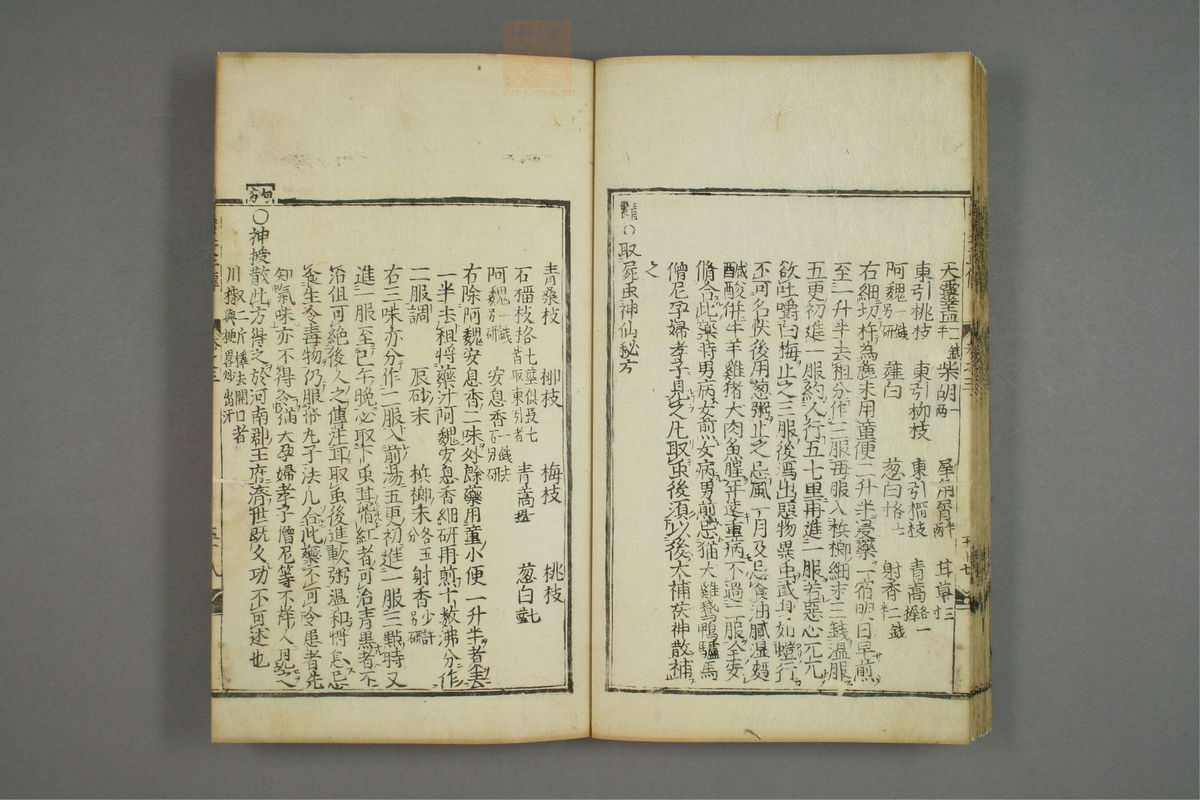 天靈蓋半 柴胡一兩 犀角屑半兩 甘草三寸
東引桃枝 東引柳枝 東引榴枝 青蒿一握
阿魏一錢別研 薤白 葱白格七 射香一錢
右細切杵為麄末用童便二升半浸藥一宿明日早煎
至一升半去柤分作二服再服入梹榔細末三錢温服
五更初進一服約人行五七里再進一服若惡心
欲吐嚼白梅止之三服後瀉出惡物異虫或身如螘行
不可名快後用葱粥止之忌風一月及忌食油膩湿麪
醎酸併牛羊雞猪犬肉魚腥等遠重病不過二服全安
脩合此藥時男病女煎女病男煎忌猫犬雞鵞鴨驢馬
僧尼孕婦孝子見之凡取虫後須以後大補茯神散補
之
青囊○取屍虫神仙秘方
青桑枝 柳枝 梅枝 桃枝
石榴枝格七莖俱長七寸取東引者 青蒿一握 葱白七莖
阿魏一錢別研 安息香一錢別研
右除阿魏安息香二味外餘藥用童小便一升半煮去
一半去柤將藥汁阿魏安息香細研再煎十數沸分作
二服調 辰砂末 梹榔末各五分 射香少許別研
右三味亦分作二服入前湯五更初進一服三點時又
進一服至巳午晚必取下虫其 紅者可治青黑者不
治但可絶後人之傳注耳取虫後進軟粥温和將息忌
食生冷毒物仍服 丸子法凡合此藥不可令患者先
知氣味亦不得令猫犬孕婦孝子僧尼等不祥人見之
○神授散此方得之於河南郡王府濟世既久功不可述也
川椒二斤擇去開口者與梗畧炒出汗